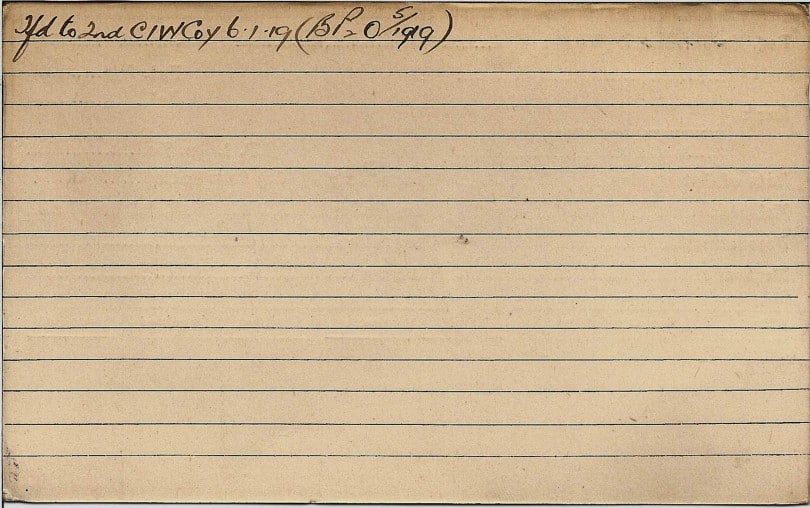 Tfd to 2nd CIW Coy 6.1.19 (BP2 O 5/1919)